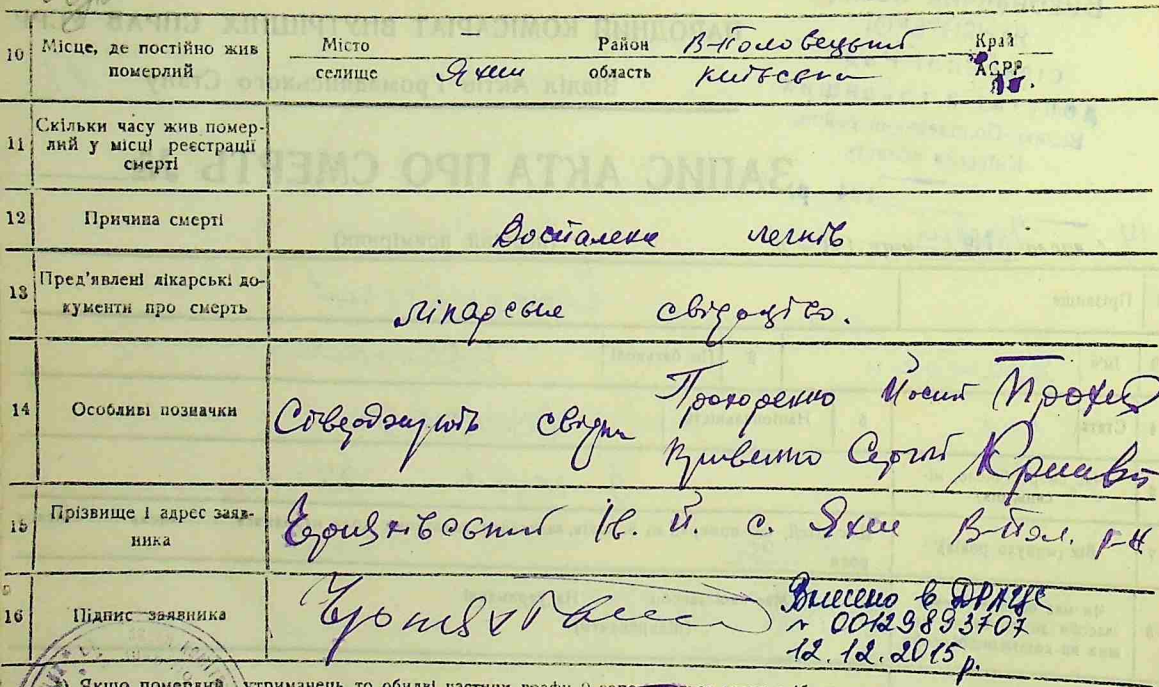 10 Місце, де постійно жив померлий
Місто селище Яхни
Район область В-Половецький Київська
Край АСРР
11 Скільки часу жив померлий у місці реєстрації смерті
12 Причина смерті
Воспалена легнів
13 Пред'явлені лікарські документи про смерть
лікарське свідоцтво.
14 Особливі позначки
Стверджують свідки
Прохоренко Йосип
Кривенко Сергій
15 Прізвище і адрес заявника
Ів. Й. с. Яхни В-Пол. р-н
16 Підпис заявника
Внесено в ДРАЦС
00129893707
12.12.2015 р.
Якщо померлий утриманець, то обидві частини графи